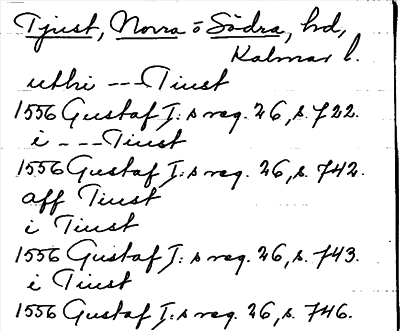 Tjust, Norra o Södra, hd,
Kalmar l.
uthi --- Tiust
1556 Gustaf I:s reg. 26, s. 722.
i --- Tiust
1556 Gustaf I:s reg. 26, s. 742.
aff Tiust
i Tiust
1556 Gustaf I:s reg. 26, s. 743.
i Tiust
1556 Gustaf I:s reg. 26, s. 746.